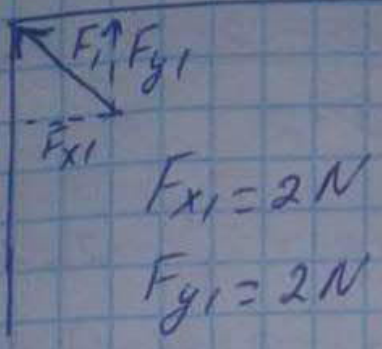 F₁ Fy₁
Fx₁
Fx₁ = 2N
Fy₁ = 2N